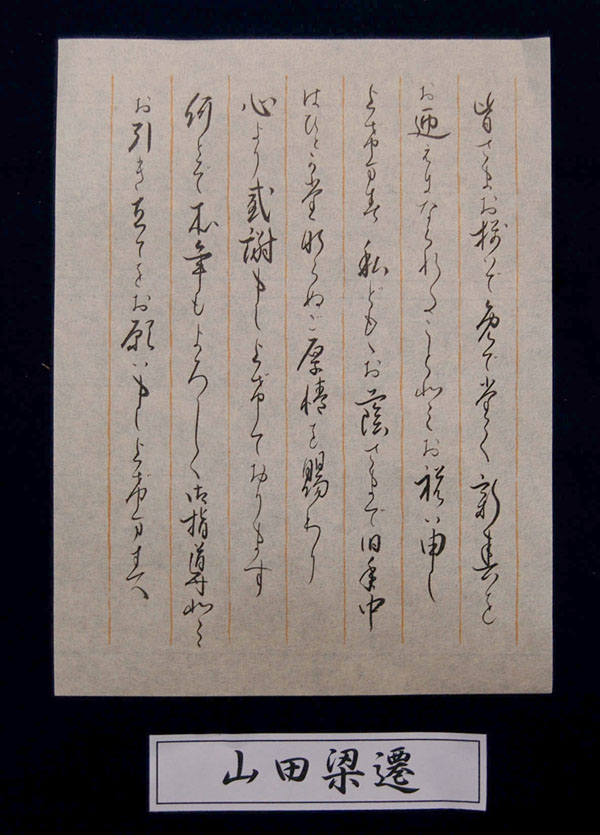 皆さまお揃いでめでたく新春を
お迎えになられたこと お祝い申し
上げます 私どももお蔭さまで旧年中
はひとかたならぬご厚情を賜わり
心より感謝申し上げております
何とぞ本年もよろしく御指導
お引き立てをお願い申し上げます
山田梁遷